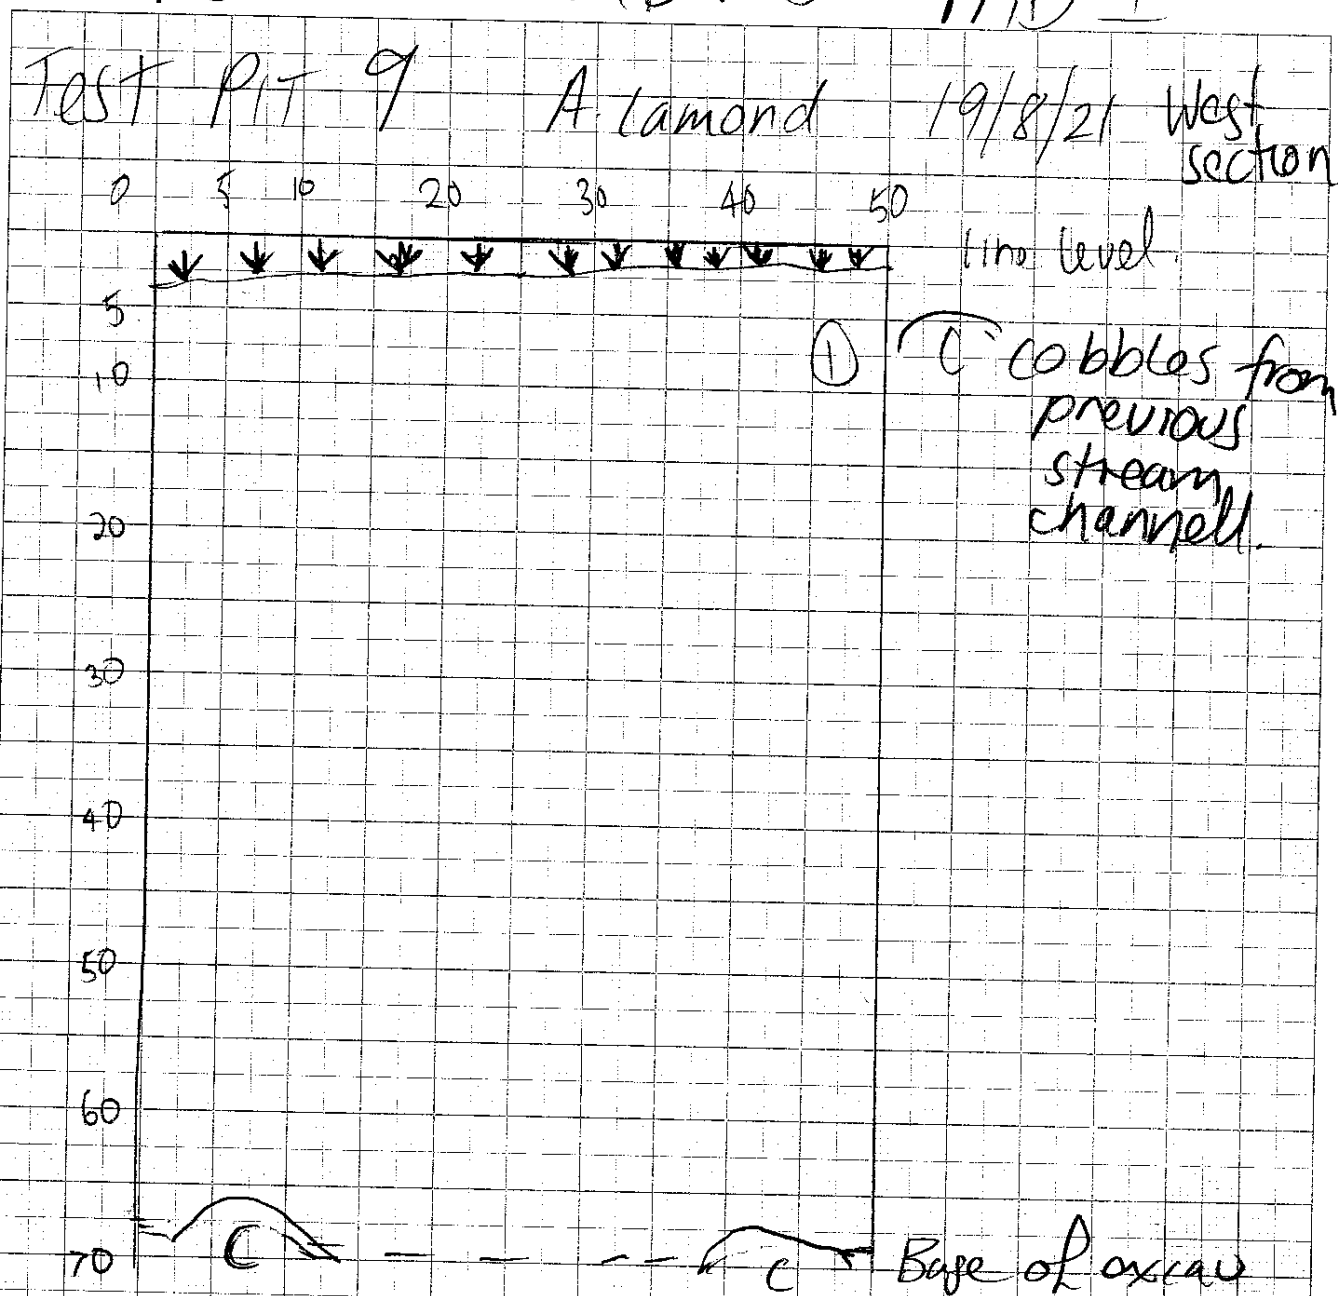 Test Pit 9 A. Lamond 19/8/21 West
section
0 5 10 20 30 40 50
line level.
5
① C cobbles from
10
previous
stream
channell.
20
30
40
50
60
C
70 C Base of excav